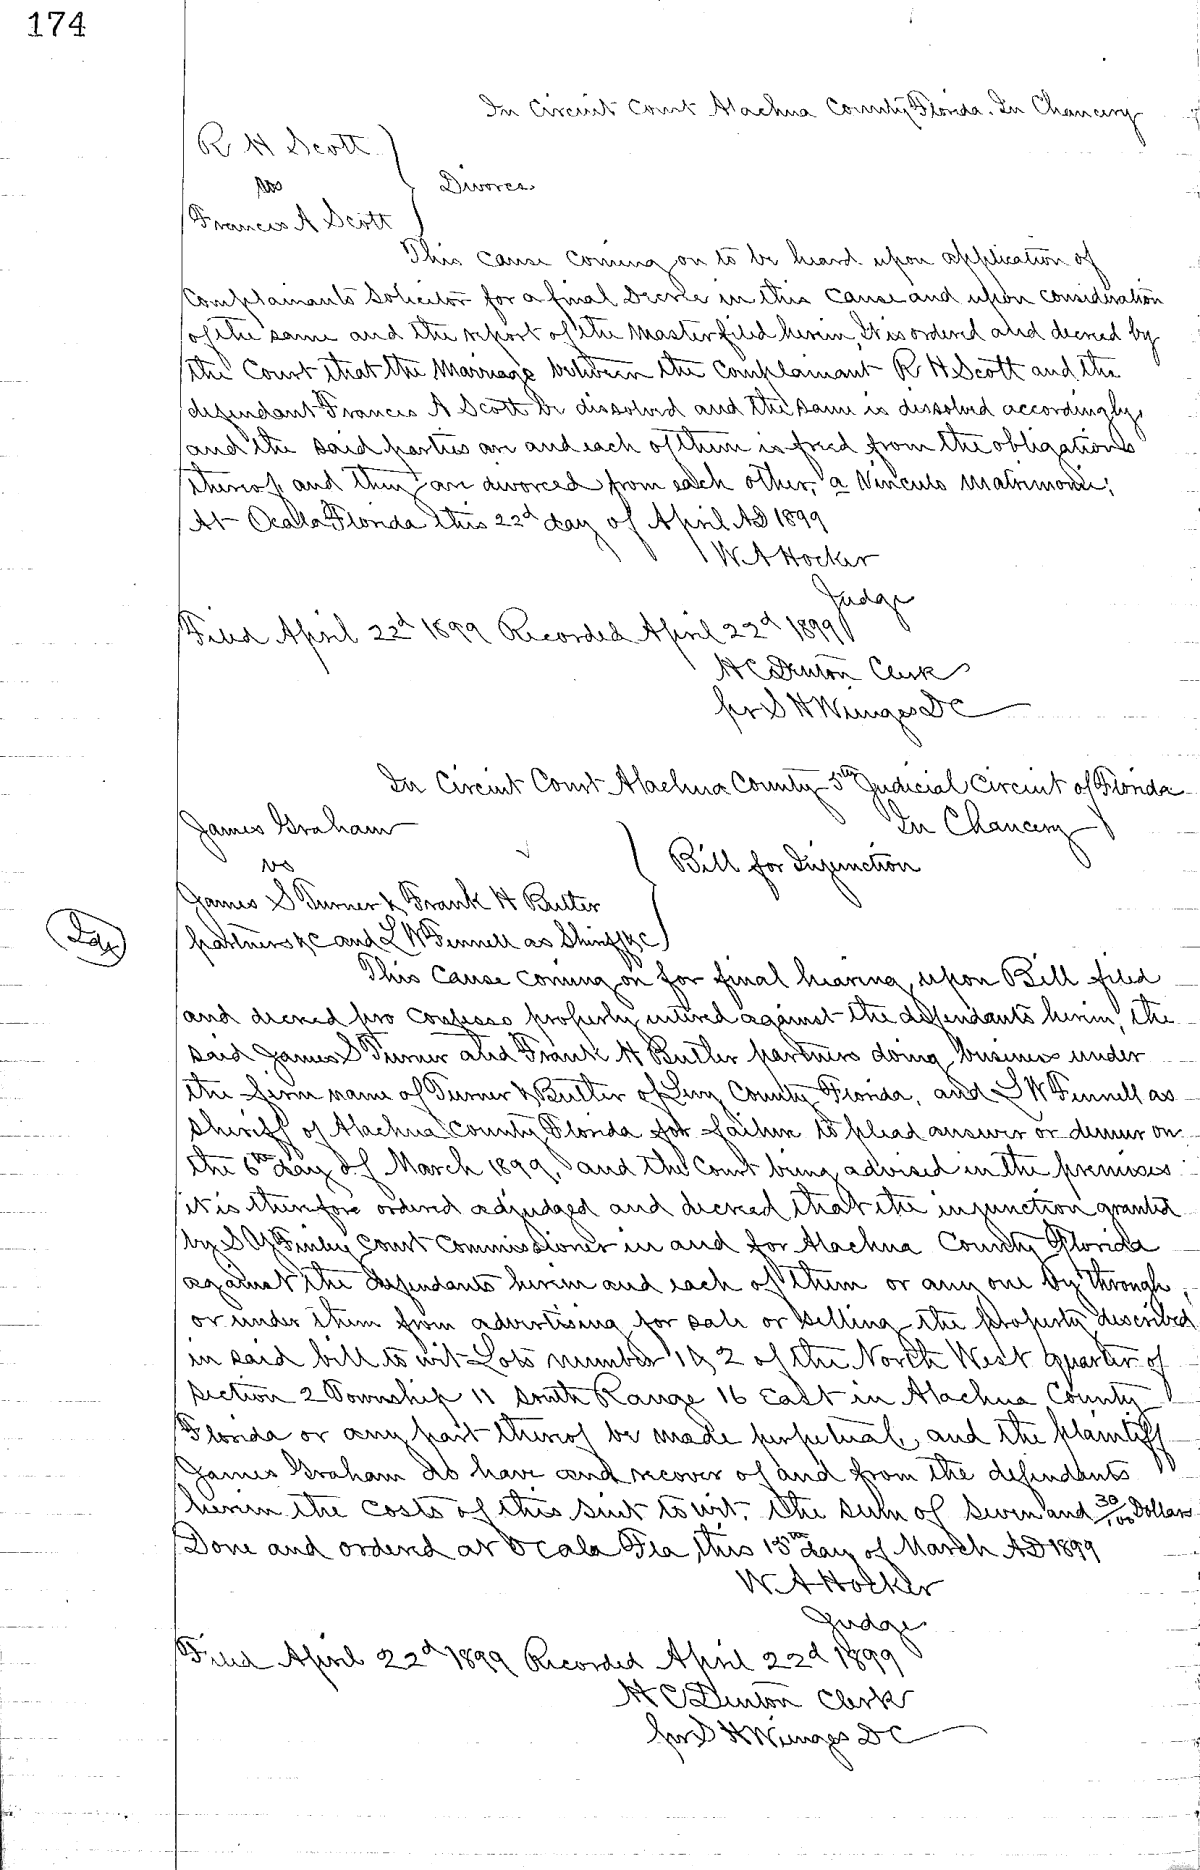 174
In Circuit Court Alachua County Florida. In Chancery
R H Scott
vs
Divorce
Frances A Scott
This cause coming on to be heard upon application of
Complainants Solicitor for a final decree in this cause and upon consideration
of the same and the report of the Master filed herein, It is ordered and decreed by
the Court that the Marriage between the Complainant R H Scott and the
defendant Frances A Scott be dissolved and the same is dissolved accordingly,
and the said parties are and each of them is freed from the obligations
thereof and they are divorced from each other, a Vinculo Matrimonii;
At Ocala Florida this 22d day of April AD 1899
W A Hocker
Judge
Filed April 22d 1899 Recorded April 22d 1899
H C Denton Clerk
per S H Wienges DC
In Circuit Court Alachua County 5th Judicial Circuit of Florida
In Chancery
James Graham
vs
Bill for Injunction
James S Turner & Frank H Butler
partners &c and L W Fennell as Sheriff &c
This cause coming on for final hearing, upon Bill filed
and decreed pro Confesso properly entered against the defendants herein, the
said James S Turner and Frank H Butler partners doing business under
the firm name of Turner & Butler of Levy County Florida, and L W Fennell as
Sheriff of Alachua County Florida for failure to plead answer or demur on
the 6th day of March 1899, and the Court being advised in the premises
it is therefore ordered adjudged and decreed that the injunction granted
by S Y Finley Court Commissioner in and for Alachua County Florida
against the defendants herein and each of them or any one by through,
or under them from advertising for sale or selling the property described
in said bill to wit Lots number 1 & 2 of the North West quarter of
section 2 Township 11 South Range 16 East in Alachua County
Florida or any part thereof be made perpetual, and the plaintiff
James Graham do have and recover of and from the defendants
herein the costs of this suit to wit, the sum of Seven and 30/100 Dollars
Done and ordered at Ocala Fla, this 15th day of March AD 1899
W A Hocker
Judge
Filed April 22d 1899 Recorded April 22d 1899
H C Denton Clerk
per S H Wienges DC